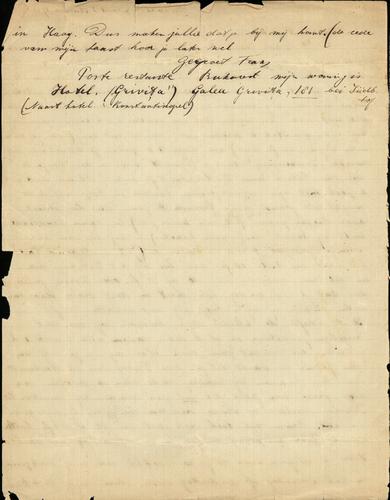 in Haag. Dus maken jullie dat je bij mij komt. (de rede
van mijn haast hoor je later wel
Gegroet Frans
Poste restante Bukarest mijn woning is
Hotel. (Grivița) Calea Grivița 181 bei
(Naast hotel Konstantinopel)